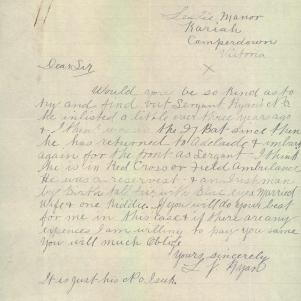 Leslie Manor
Kariah
Camperdown
Victoria
Dear Sir
Would you be so kind as to
try and find out Sergant Ryans No
He enlisted a little over three years ago
& I think was in the 27 Bat since then
he has returned to Adelaide & embark
again for the front as Sergant - I think
he is in Red Cross or Field Ambulance
He was a reservest & an Irishman
by Birth tall fair with Blue eyes Married
Wife & one kiddie. If you will do your best
for me in this case & if there are any
expences I am willing to pay you same
You will much Oblige
Yours sincerely
L Ryan
It is just his No I seek